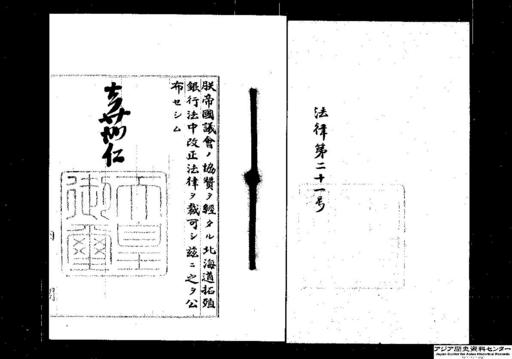 法律第二十一号
朕帝國議會ノ協賛ヲ經タル北海道拓殖
銀行法中改正法律ヲ裁可シ茲ニ之ヲ公
布セシム
嘉仁
天皇
御璽
アジア歴史資料センター
Japan Center for Asian Historical Records